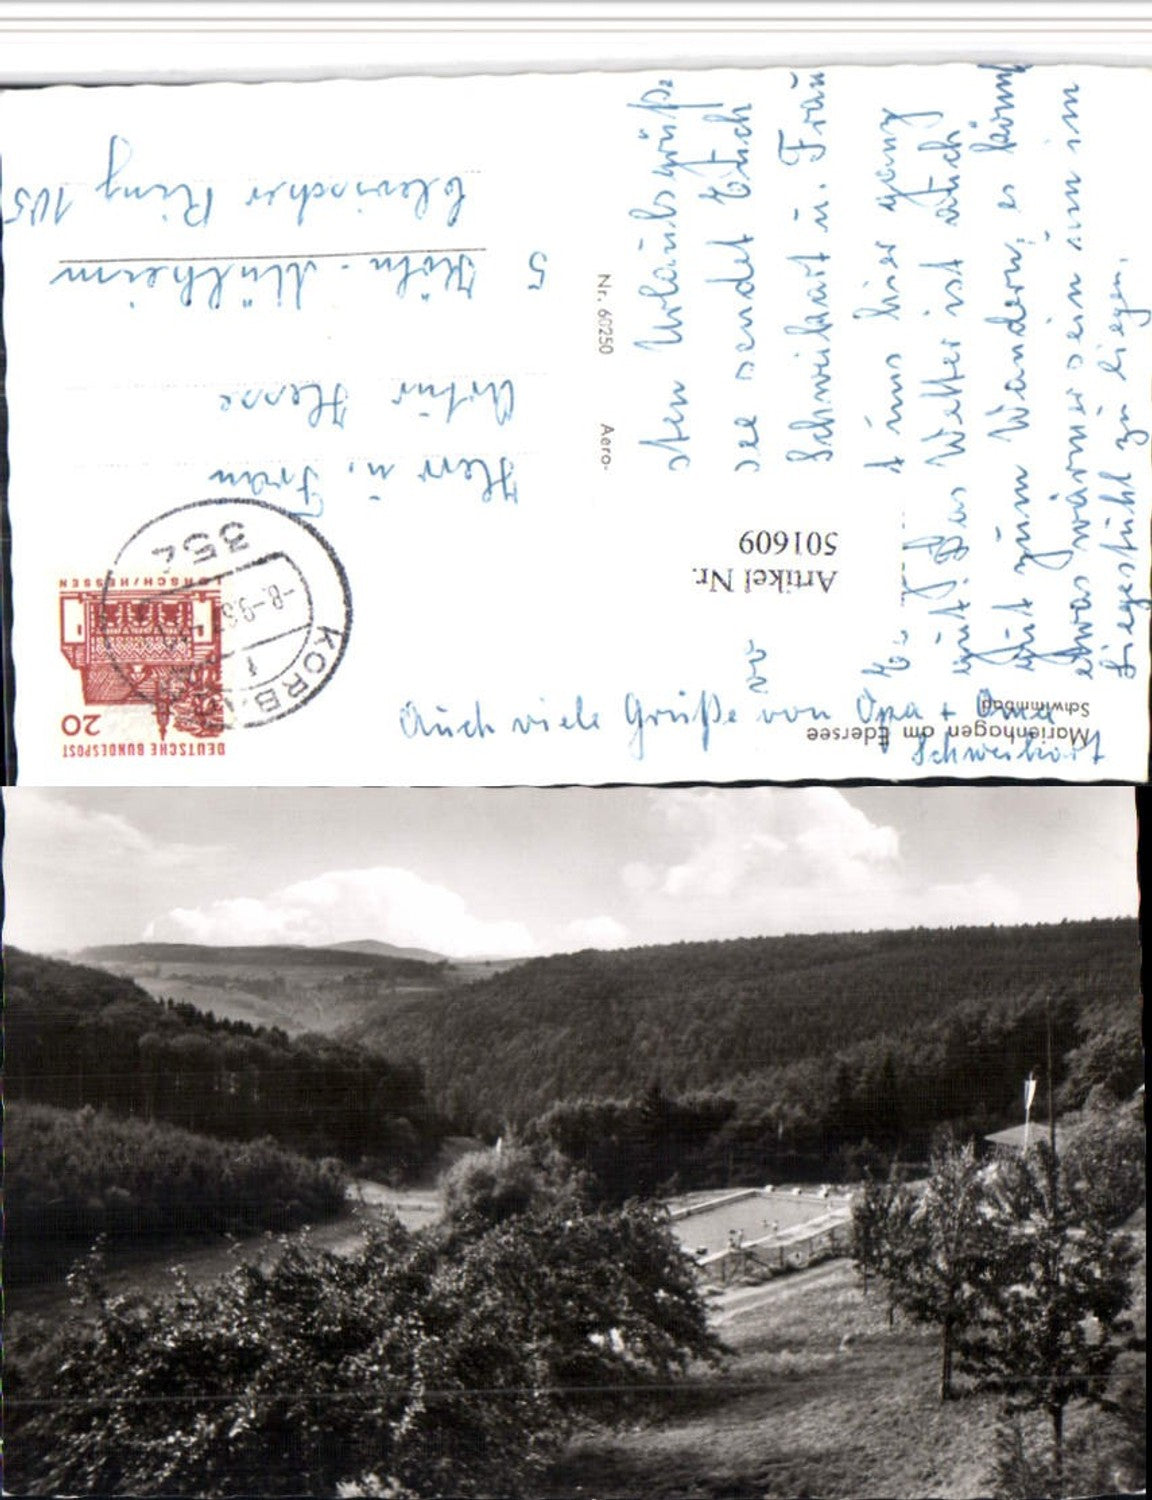 Marienhagen am Edersee
Schwimmbad
DEUTSCHE BUNDESPOST
20
LORSCH/HESSEN
KORB
354
-8.-9.6
Artikel Nr.
501609
Aero-
Nr. 60250
Herr u. Frau
Artur Hesse
5 Köln-Mülheim
Clevischer Ring 105
sten Urlaubsgrüße
see sendet Euch
Schweikart u. Frau
uns hier ganz
gut. Das Wetter ist auch
gut zum Wandern, es könnt
etwas wärmer sein um im
Liegestuhl zu liegen.
Auch viele Grüße von Opa + Oma
Schweikart